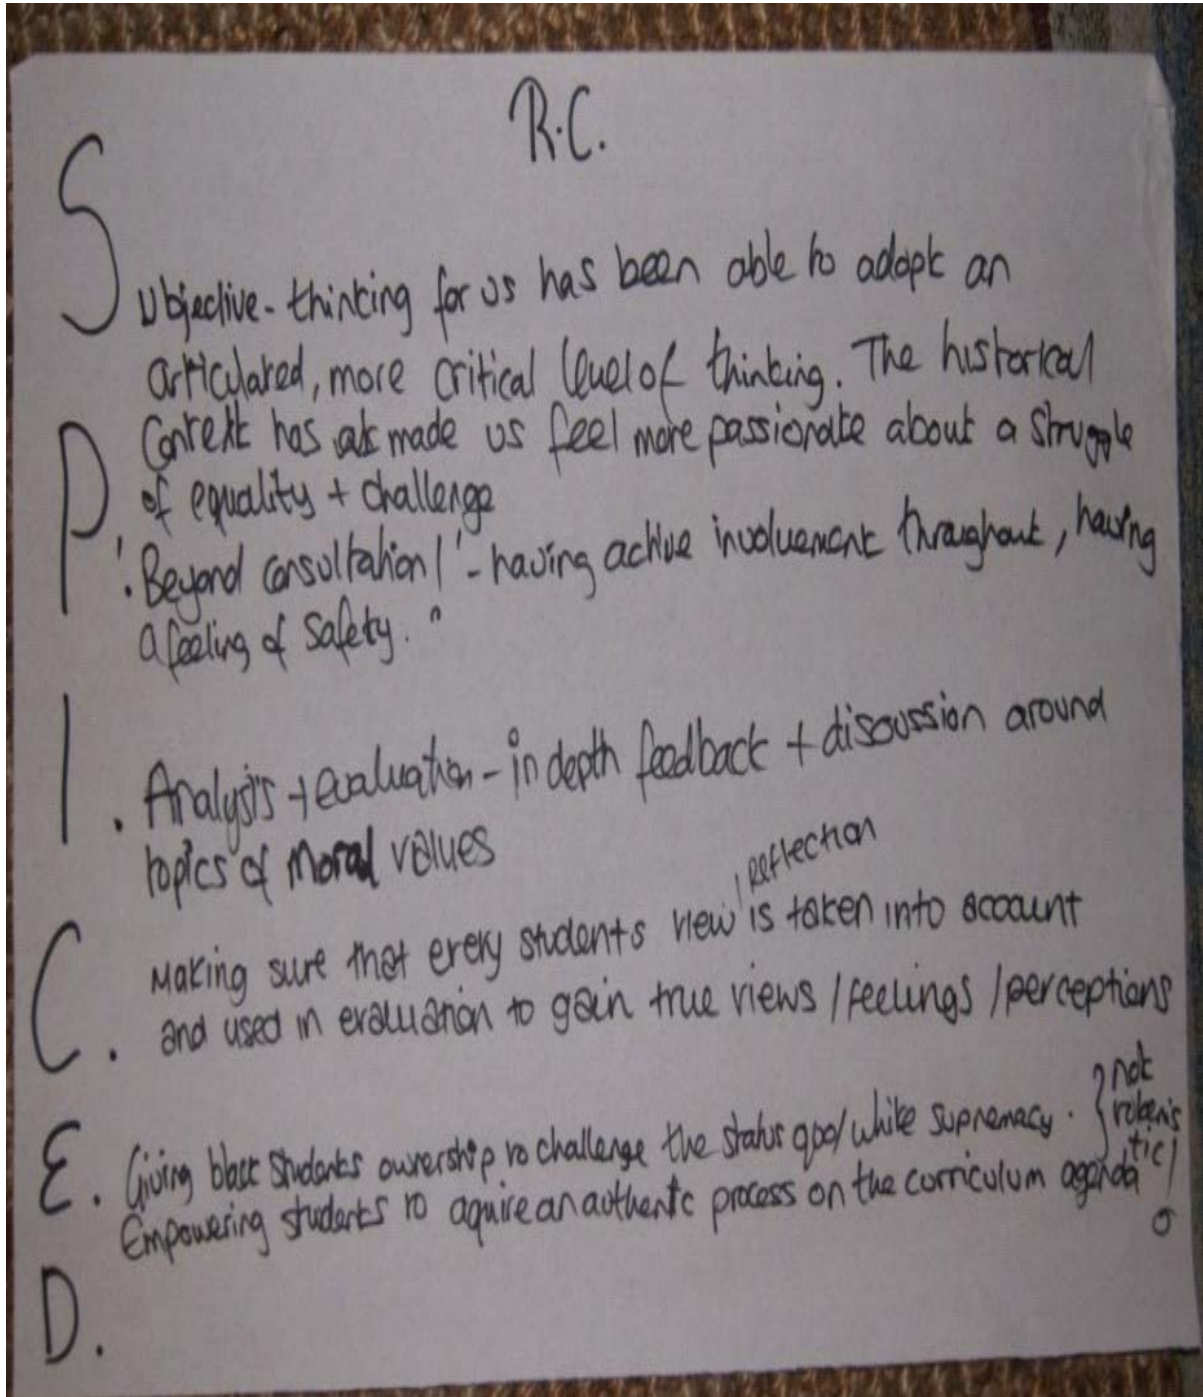 R.C.
Subjective - thinking for us has been able to adopt an
articulated, more critical level of thinking. The historical
Context has made us feel more passionate about a struggle
P. of equality + challenge
'Beyond consultation!' - having active involvement throughout, having
a feeling of safety."
I. Analysis + evaluation - in depth feedback + discussion around
topics of moral values
, reflection
C. Making sure that every students view is taken into account
and used in evaluation to gain true views / feelings / perceptions
E. Giving black students ownership to challenge the status quo/white supremacy. } not
tokenistic!
Empowering students to aquire an authentic process on the curriculum agenda
D.